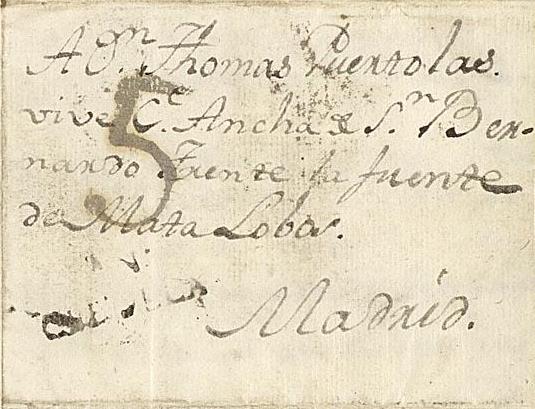 A Dn. Thomas Puentolas.
vive Ce. Ancha de Sn. Ber-
nardo Frente la fuente
de Mata Lobos.
5
Madrid.